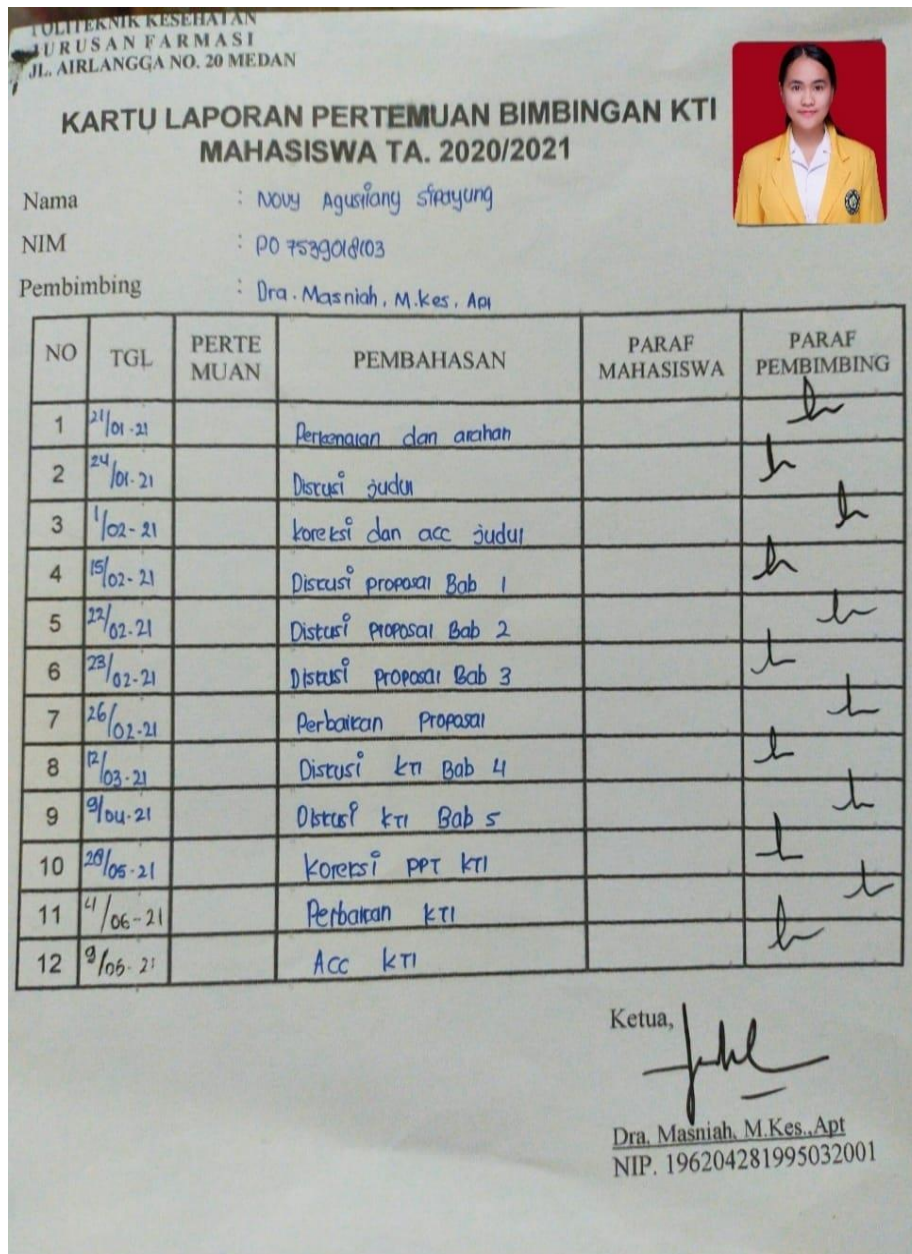 POLITEKNIK KESEHATAN
JURUSAN FARMASI
JL. AIRLANGGA NO. 20 MEDAN
KARTU LAPORAN PERTEMUAN BIMBINGAN KTI
MAHASISWA TA. 2020/2021
Nama : Novy Agustiany Sipayung
NIM : PO 7539018103
Pembimbing : Dra. Masniah, M.Kes, Apt
NO TGL PERTE MUAN PEMBAHASAN PARAF MAHASISWA PARAF PEMBIMBING
1 21/01-21 Perkenalan dan arahan
2 24/01-21 Diskusi judul
3 1/02-21 koreksi dan acc judul
4 15/02-21 Diskusi proposal Bab 1
5 22/02-21 Diskusi proposal Bab 2
6 23/02-21 Diskusi proposal Bab 3
7 26/02-21 Perbaikan Proposal
8 12/03-21 Diskusi KTI Bab 4
9 9/04-21 Diskusi KTI Bab 5
10 28/05-21 Koreksi PPT KTI
11 4/06-21 Perbaikan KTI
12 9/06-21 Acc KTI
Ketua,
Dra. Masniah, M.Kes.,Apt
NIP. 196204281995032001